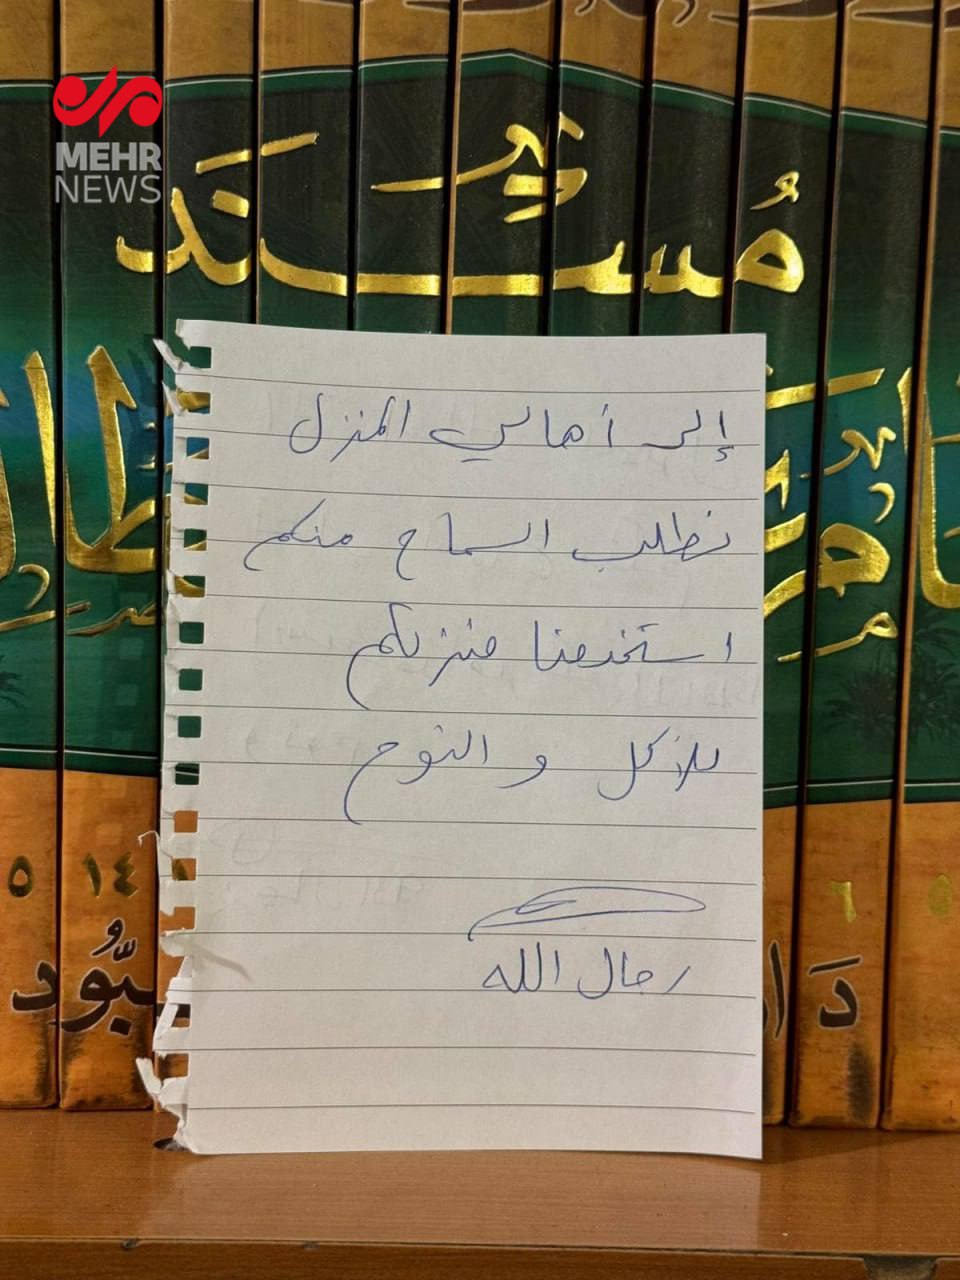 MEHR
NEWS
مُسْنَد
إلى أهالي المنزل
نطلب السماح منكم
استخدمنا منزلكم
للأكل و النوم
رجال الله
٥
١٤
٦
٥